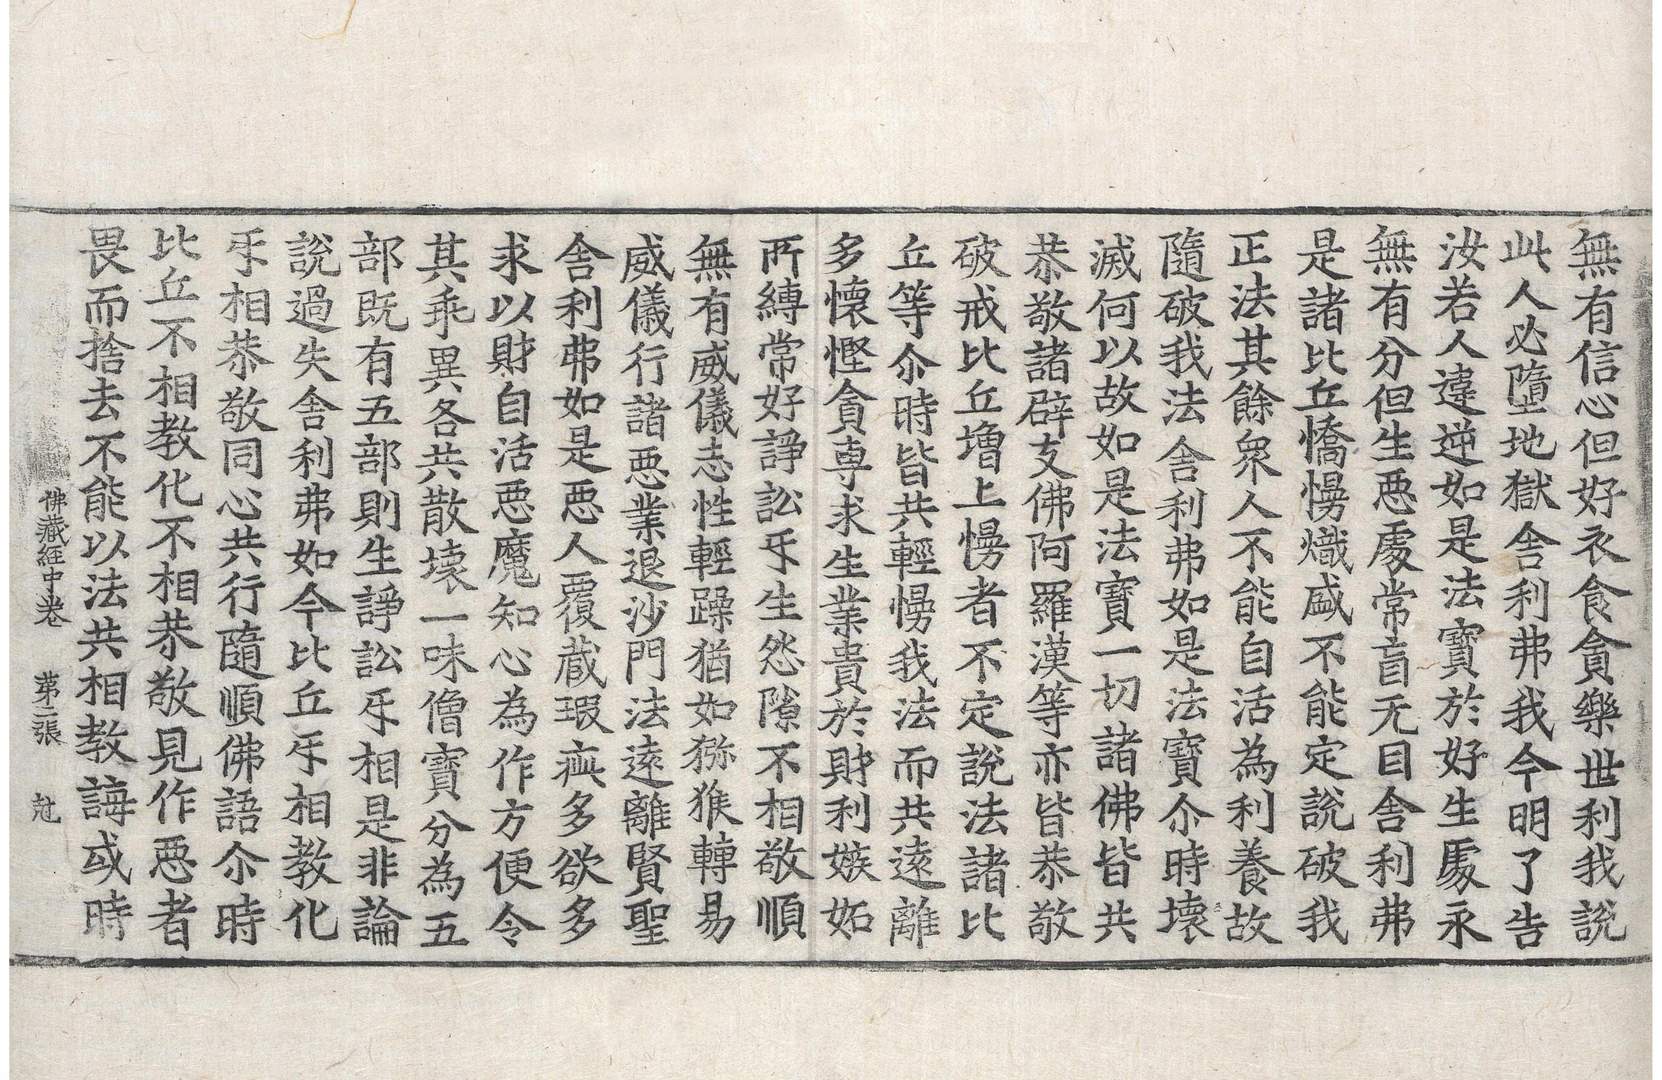 無有信心但好衣食貪樂世利我說
此人必墮地獄舍利弗我今明了告
汝若人違逆如是法寶於好生處永
無有分但生惡處常盲无目舍利弗
是諸比丘憍慢熾盛不能定說破我
正法其餘衆人不能自活為利養故
隨破我法舍利弗如是法寶尒時壞
滅何以故如是法寶一切諸佛皆共
恭敬諸辟支佛阿羅漢等亦皆恭敬
破戒比丘增上慢者不定說法諸比
丘等尒時皆共輕慢我法而共遠離
多懷慳貪專求生業貴於財利嫉妬
所縛常好諍訟乎生怨隙不相敬順
無有威儀志性輕躁猶如猕猴轉易
威儀行諸惡業退沙門法遠離賢聖
舍利弗如是惡人覆蔵瑕疵多欲多
求以財自活惡魔知心為作方便令
其乖異各共散壞一味僧寶分為五
部既有五部則生諍訟乎相是非論
說過失舍利弗如今比丘乎相教化
乎相恭敬同心共行隨順佛語尒時
比丘不相教化不相恭敬見作惡者
畏而捨去不能以法共相教誨或時
佛藏經中卷 第二張 尅